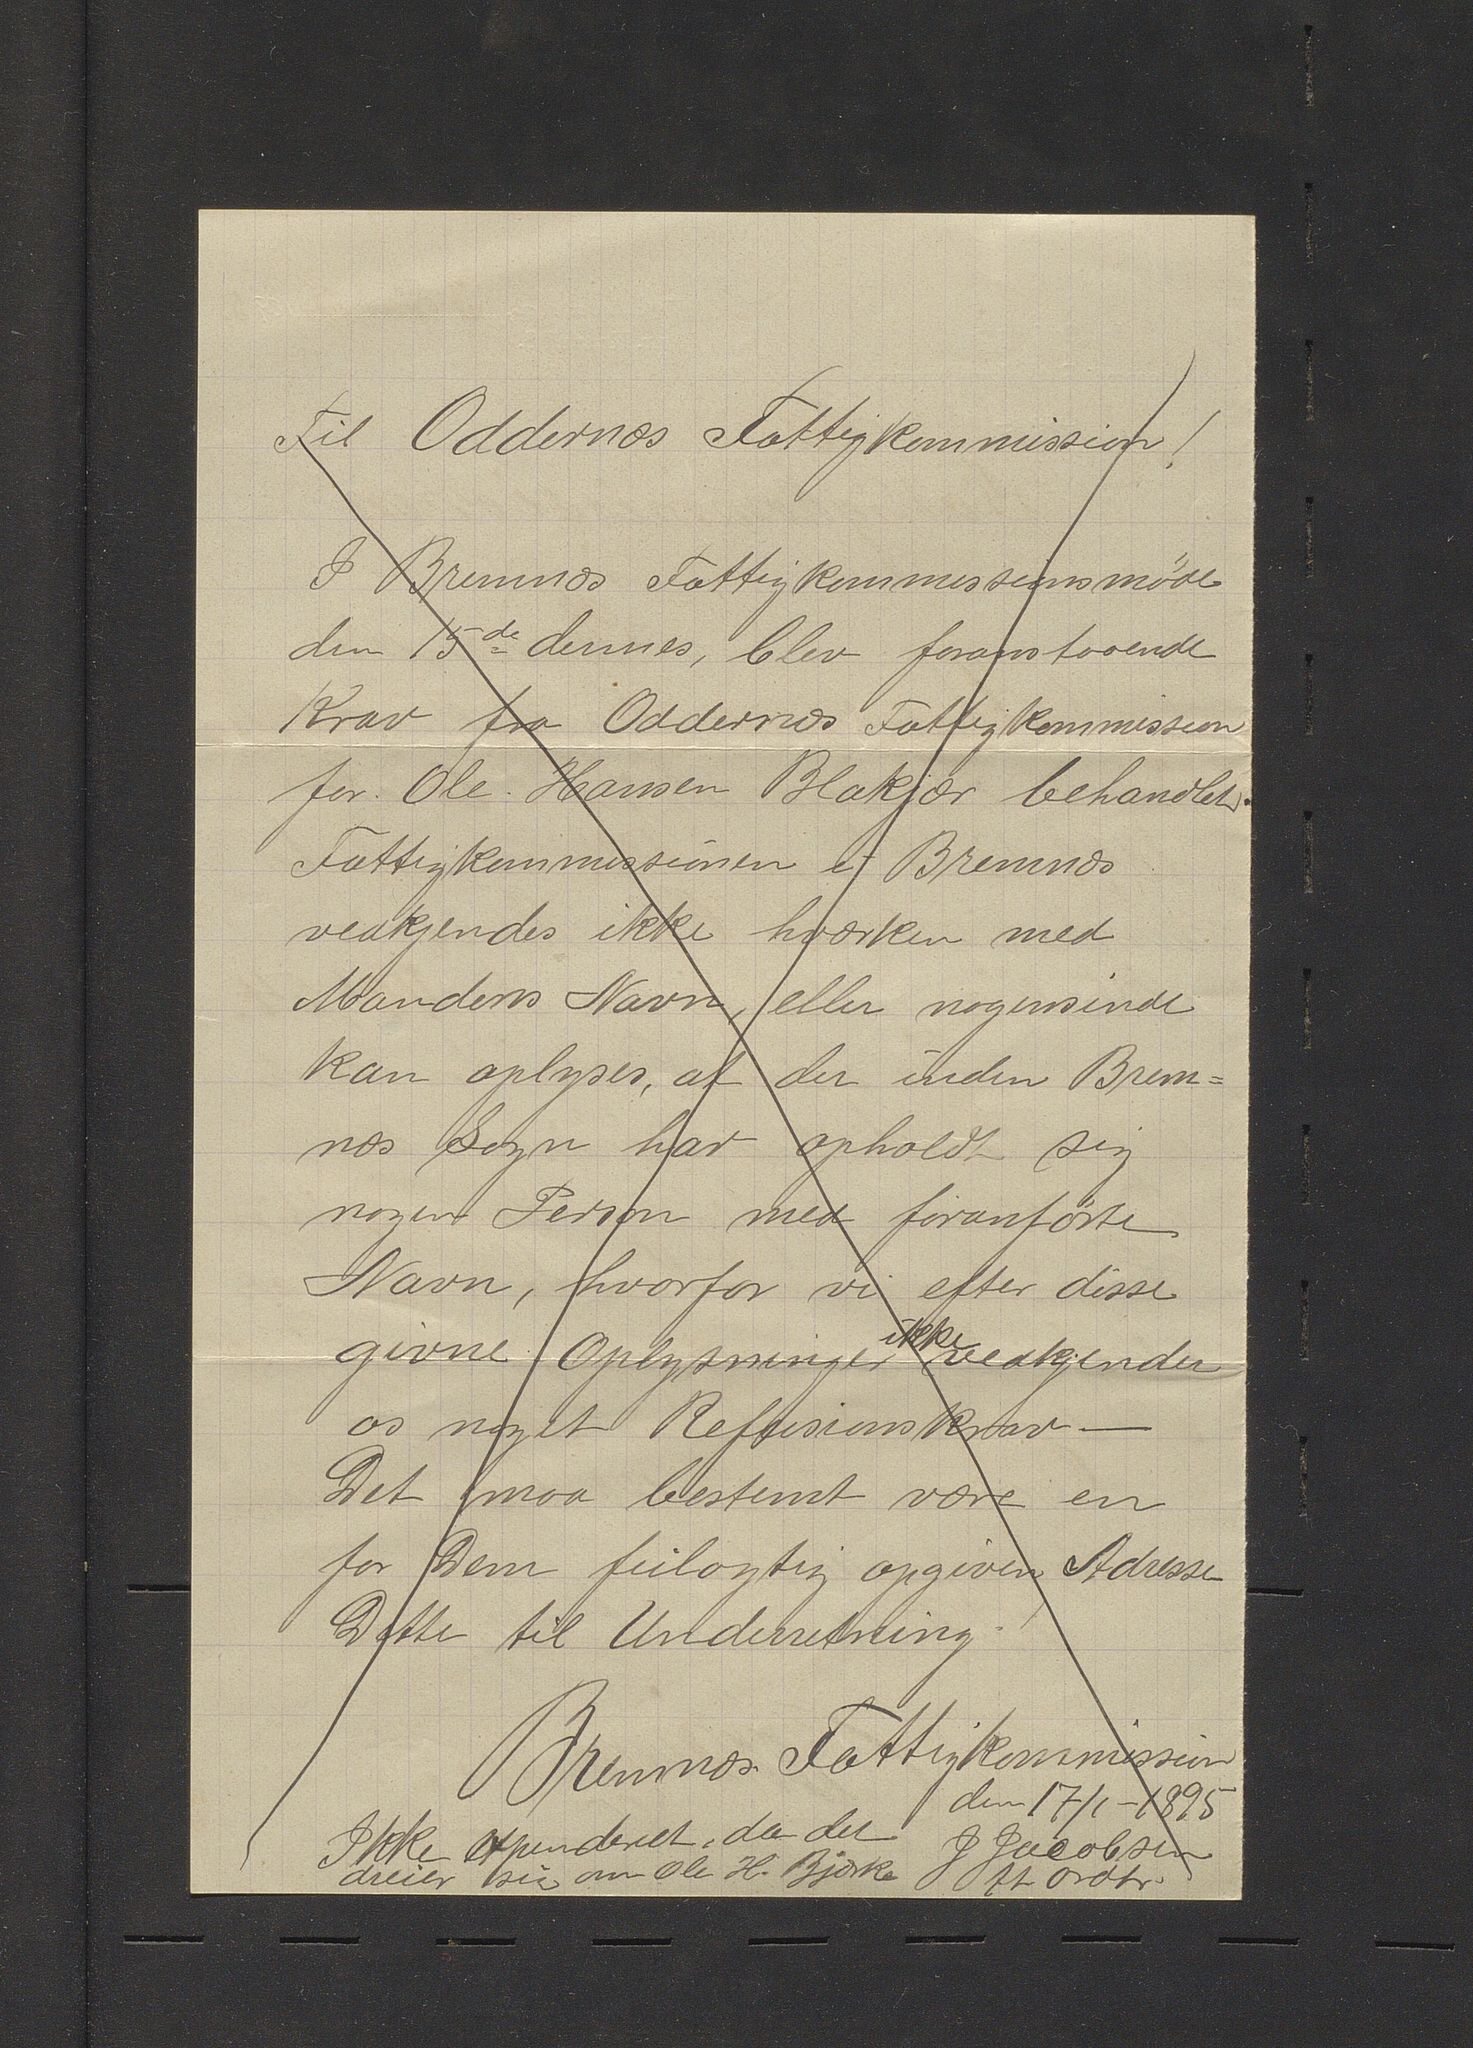 Til Oddernæs Fattigkommission!
I Bremnæs Fattigkommissionsmøde
den 15de dennes, blev foranstaaende
Krav fra Oddernæs Fattigkommission
for Ole Hansen Blakjær behandlet.
Fattigkommissionen i Bremnæs
vedkjendes ikke hværken med
Mandens Navn, eller nogensinde
kan oplyses, at der inden Brem=
næs Sogn har opholdt sig
nogen Person med foranførte
Navn, hvorfor vi efter disse
givne Oplysninger ikke vedkjender
os noget Refusionskrav —
Det maa bestemt være en
for Dem feilagtig opgiven Adresse
Dette til Underretning.
Bremnæs Fattigkommission
den 17/1-1895
J Jacobsen
ft ordf.
Ikke expenderet, da det
dreier sig om Ole H. Bjørke